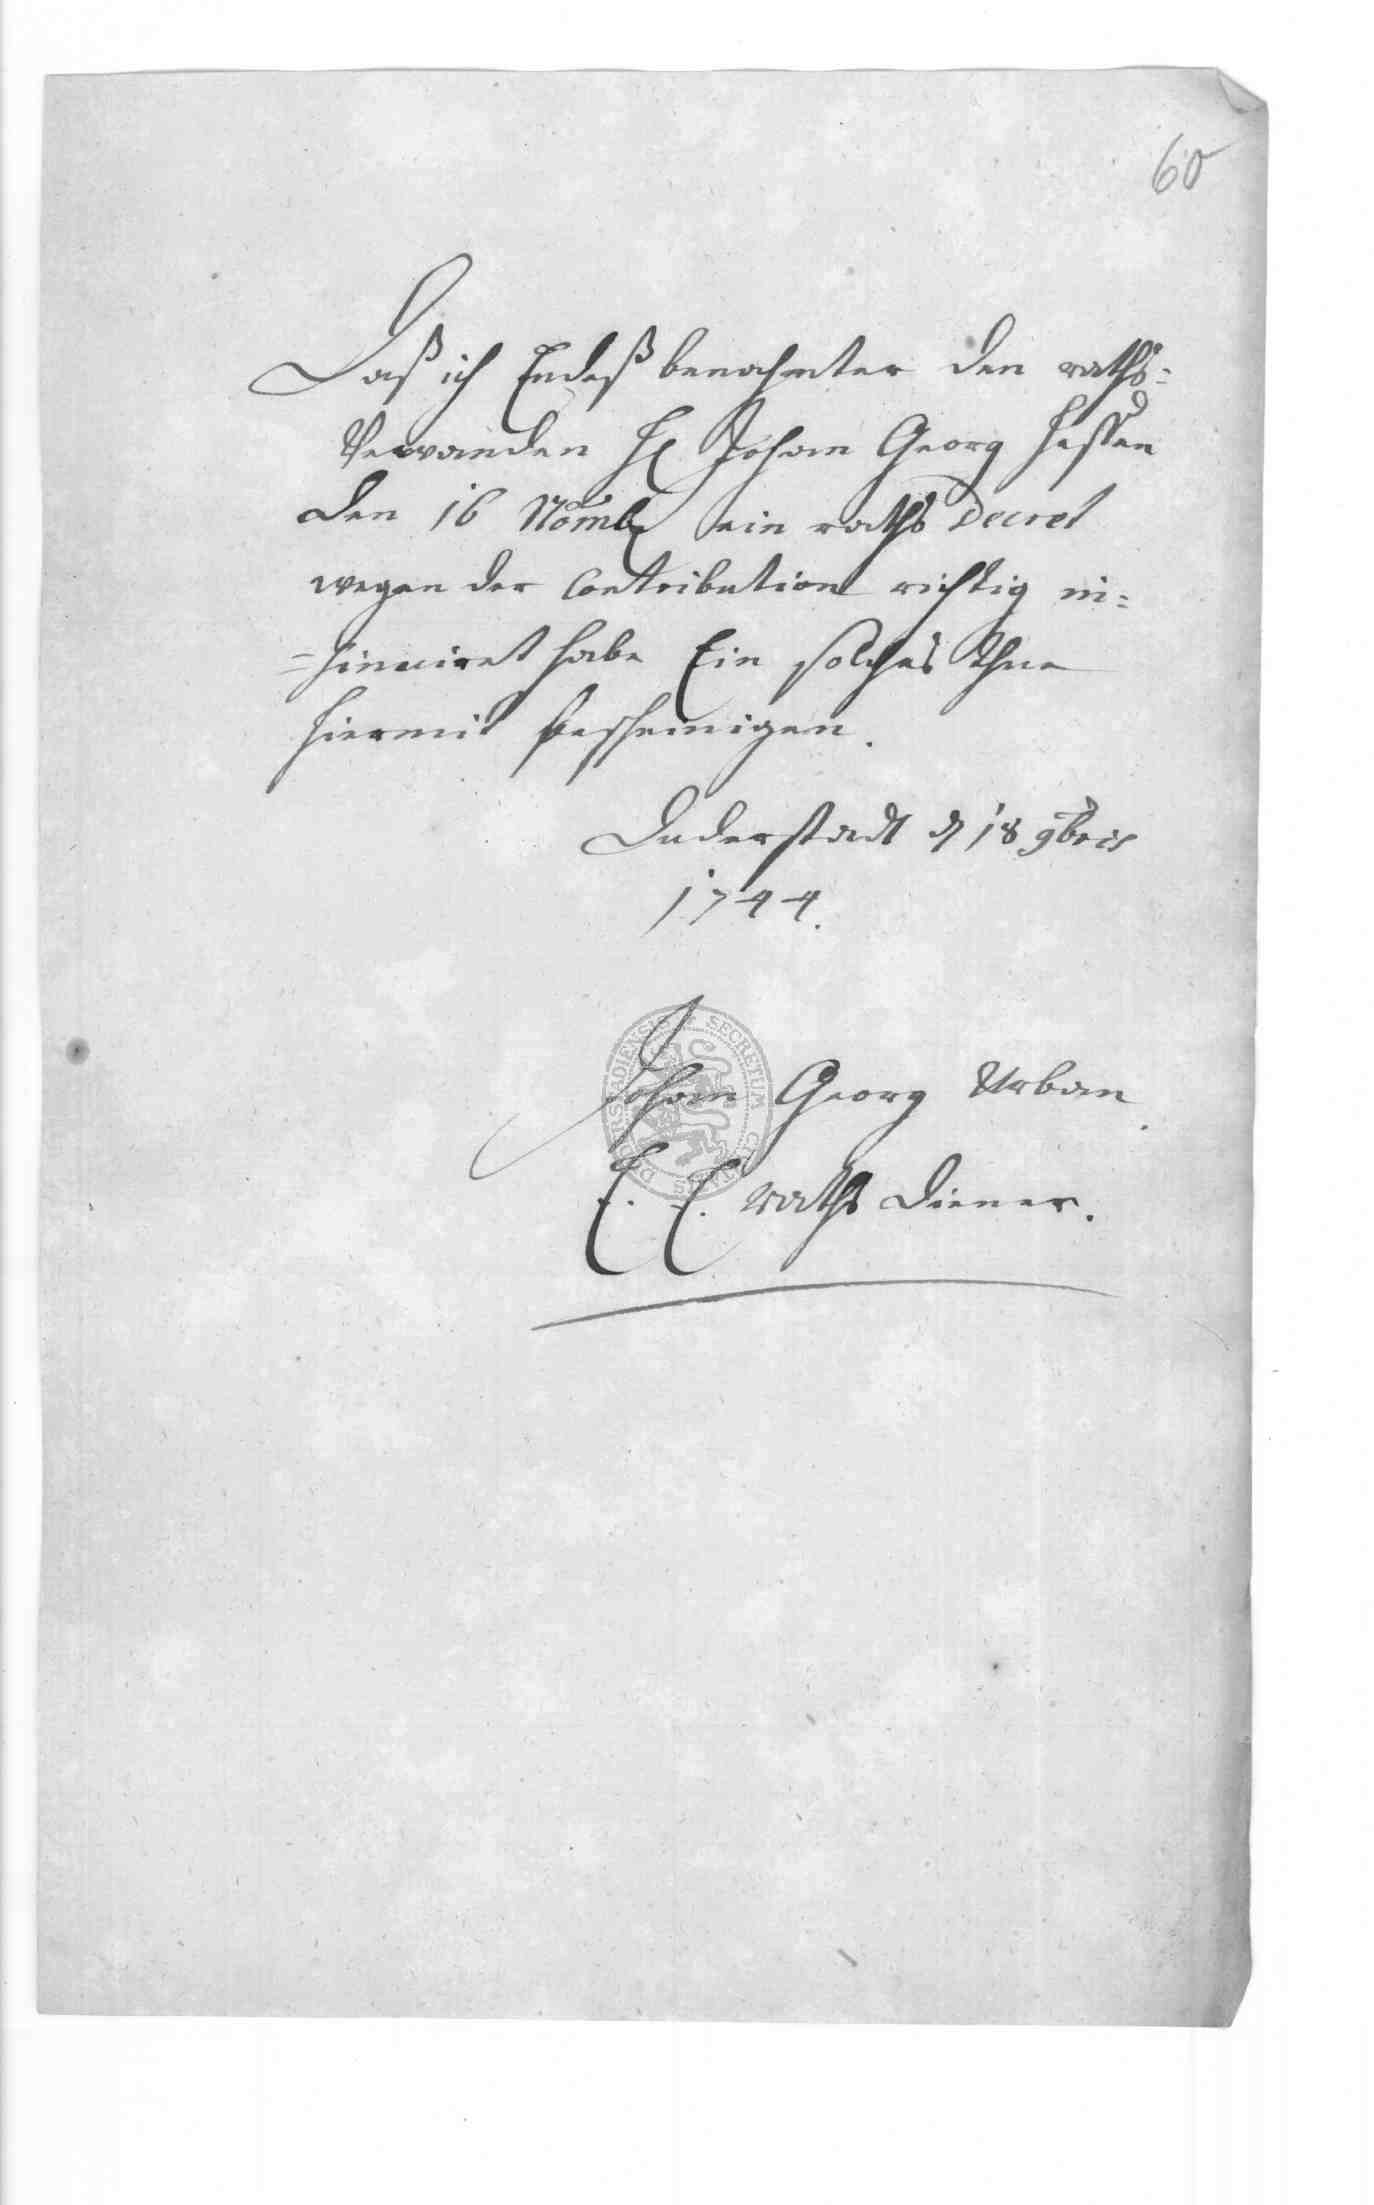 60
Daß ich Endeß benahmter den raths=
Verwanden H. Johan Georg Hessen
den 16 Nomb. ein raths Decret
wegen der Contribution richtig in=
=sinuiret habe Ein solches thue
hiermit bescheinigen.
Duderstadt d 18 9bris
1744.
Johan Georg Urban.
E. E. raths diener.